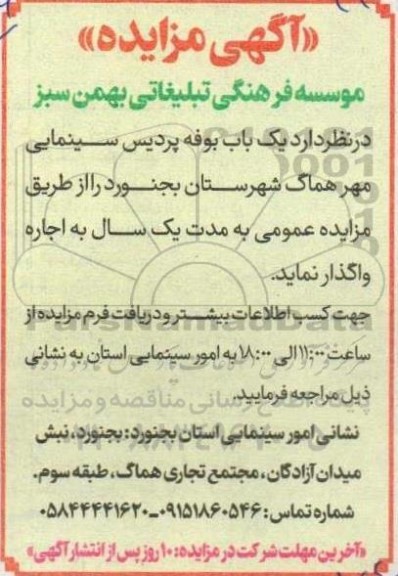 «آگهی مزایده»
موسسه فرهنگی تبلیغاتی بهمن سبز
درنظردارد یک باب بوفه پردیس سینمایی
مهر هماگ شهرستان بجنورد را از طریق
مزایده عمومی به مدت یک سال به اجاره
واگذار نماید.
جهت کسب اطلاعات بیشتر و دریافت فرم مزایده از
ساعت ۱۱:۰۰ الی ۱۸:۰۰ به امور سینمایی استان به نشانی
ذیل مراجعه فرمایید.
نشانی امور سینمایی استان بجنورد: بجنورد، نبش
میدان آزادگان، مجتمع تجاری هماگ، طبقه سوم.
شماره تماس: ۰۹۱۵۱۸۶۰۵۴۶-۰۵۸۴۴۴۴۱۶۲۰
«آخرین مهلت شرکت در مزایده: ۱۰ روز پس از انتشار آگهی»